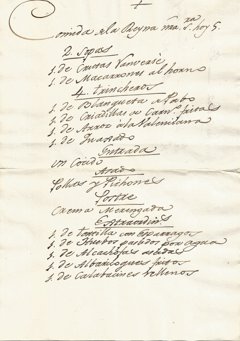 Comida de la Reyna nra. Sra. hoy 5
2 sopas
1. de Costas
1. de Macarrones al horno
4 trincheros
1. de Blanqueta de Pabo
1. de Criadillas de Carn.o fritas
1. de Arroz a la Valenciana
1. de
Entrada
un Cocido
Asado
Pollas y Pichones
Postre
Crema Merengada
Extraordin.s
1. de tortilla con Esparragos
1. de Huebos pasados por agua
1. de Alcachofas asadas
1. de Albaricoques fritos
1. de Calabacines rellenos